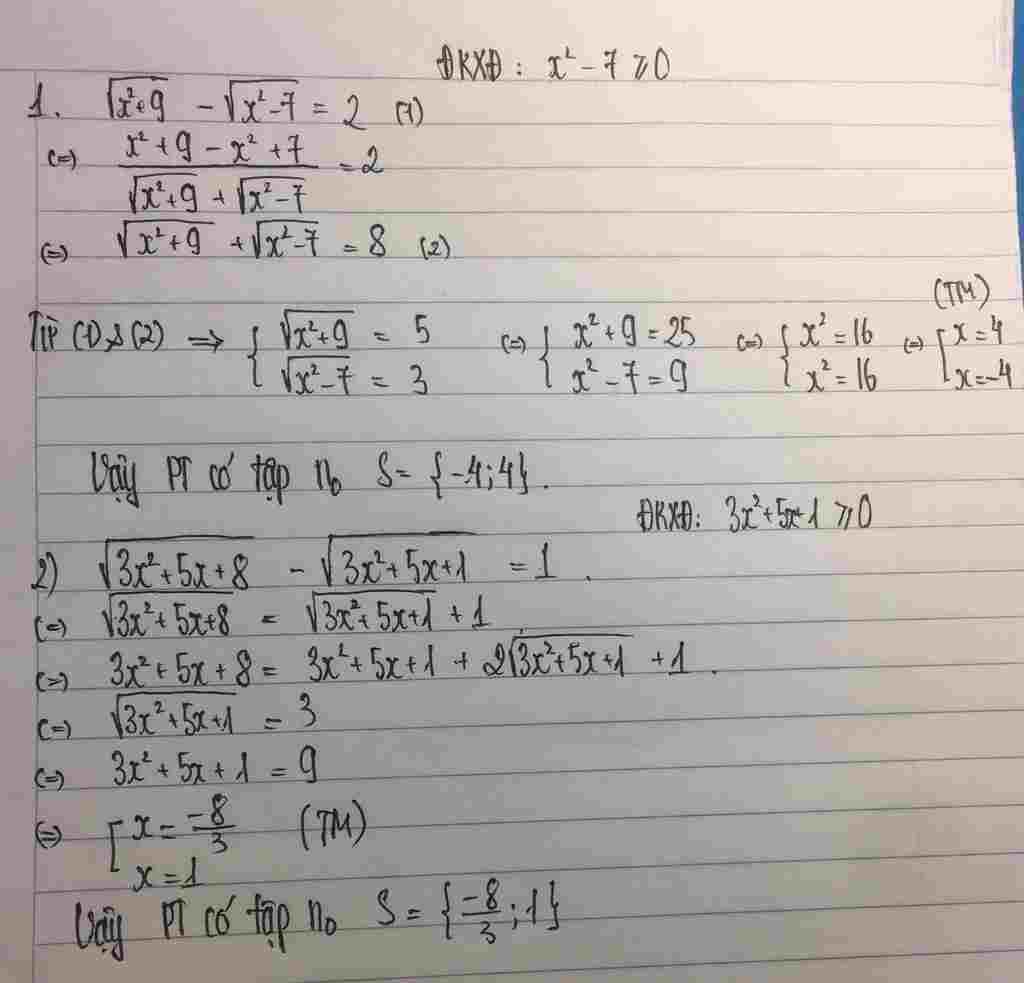 ĐKXĐ: x² - 7 ⩾ 0
1. √(x²+9) - √(x²-7) = 2 (1)
(=) (x²+9 - x²+7)/(√(x²+9) + √(x²-7)) = 2
(=) √(x²+9) + √(x²-7) = 8 (2)
Từ (1)&(2) ⇒ { √(x²+9) = 5; √(x²-7) = 3 (=) { x²+9 = 25; x²-7 = 9 (=) { x² = 16; x² = 16 (=) [ x = 4; x = -4 (TM)
Vậy PT có tập n₀ S = {-4;4}.
ĐKXĐ: 3x²+5x+1 ⩾ 0
2) √(3x²+5x+8) - √(3x²+5x+1) = 1.
(=) √(3x²+5x+8) = √(3x²+5x+1) + 1
(=) 3x²+5x+8 = 3x²+5x+1 + 2√(3x²+5x+1) + 1.
(=) √(3x²+5x+1) = 3
(=) 3x²+5x+1 = 9
(=) [ x = -8/3; x = 1 (TM)
Vậy PT có tập n₀ S = {-8/3; 1}